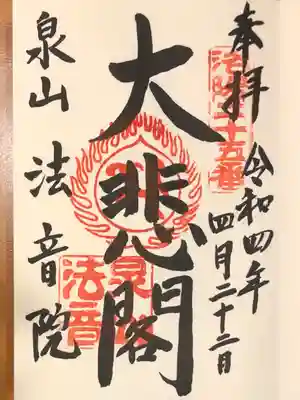 奉拝
令和四年
四月二十二日
洛陽二十五番
大悲閣
泉山
法音
泉山 法音院